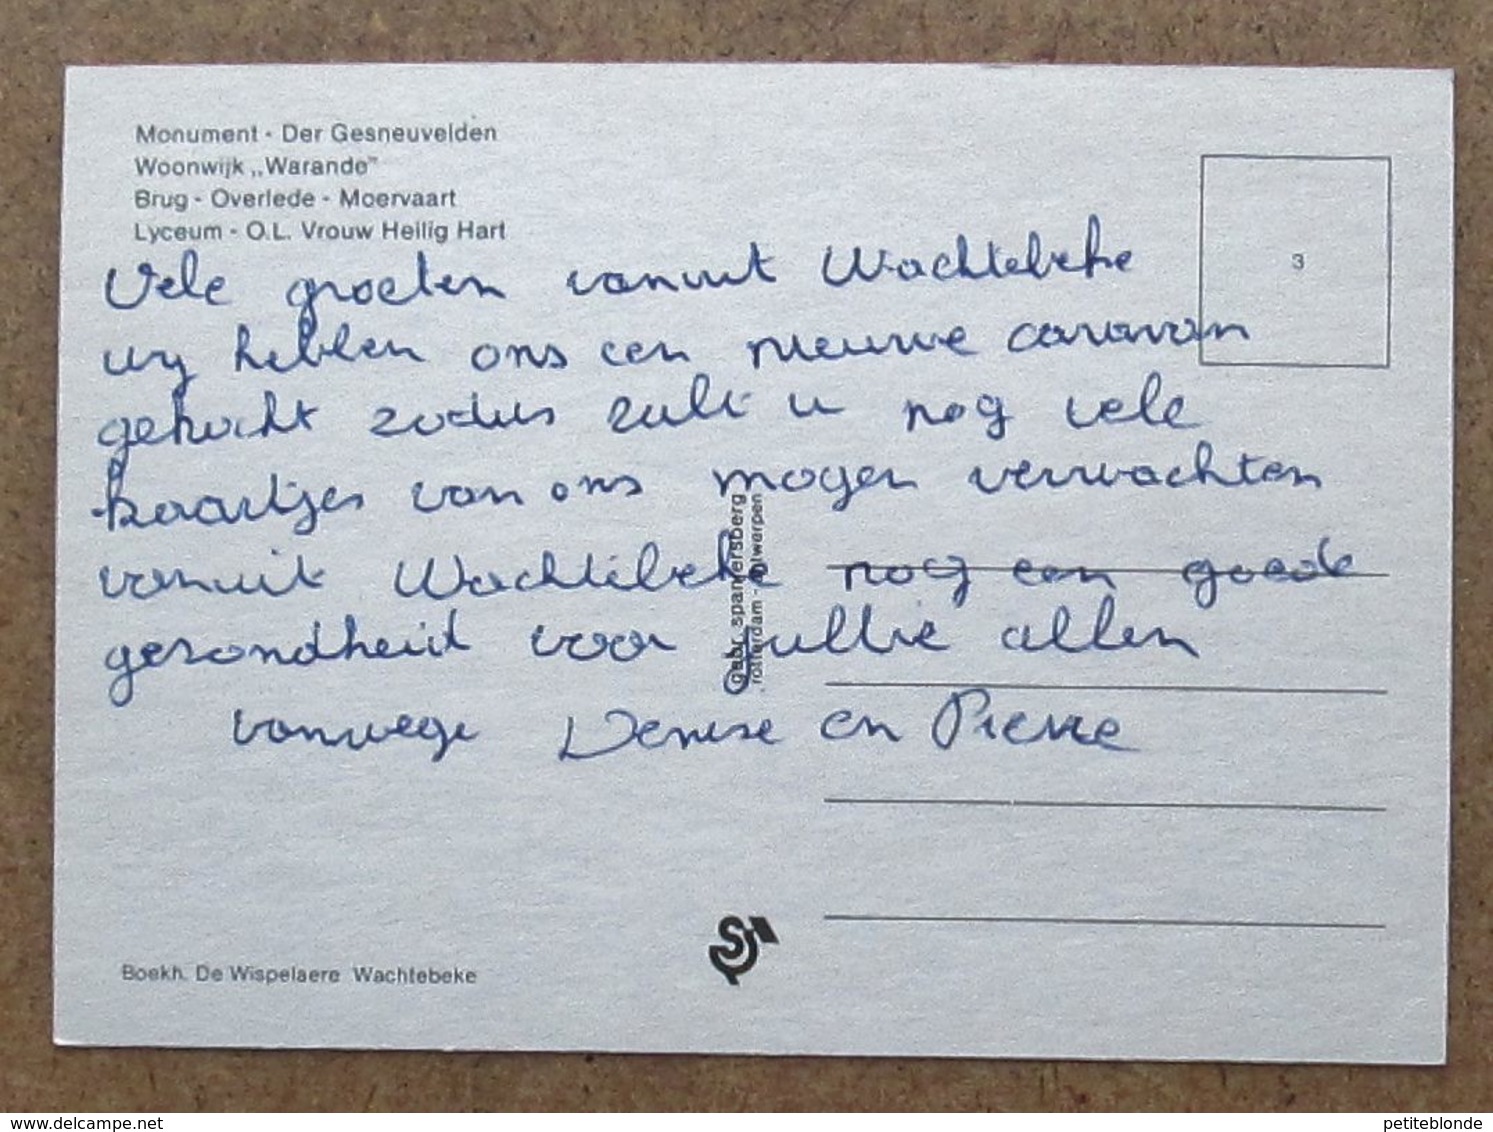 Monument - Der Gesneuvelden
Woonwijk „Warande"
Brug - Overlede - Moervaart
Lyceum - O.L. Vrouw Heilig Hart
3
Vele groeten vanuit Wachtebeke
wij hebben ons een nieuwe caravan
gekocht zodus zult u nog vele
kaartjes van ons mogen verwachten
vanuit Wachtebeke nog een goede
gezondheid voor jullie allen
vanwege Denise en Pierre
gebr. spanjersberg
rotterdam - antwerpen
S
Boekh. De Wispelaere Wachtebeke
www.delcampe.net
petiteblonde